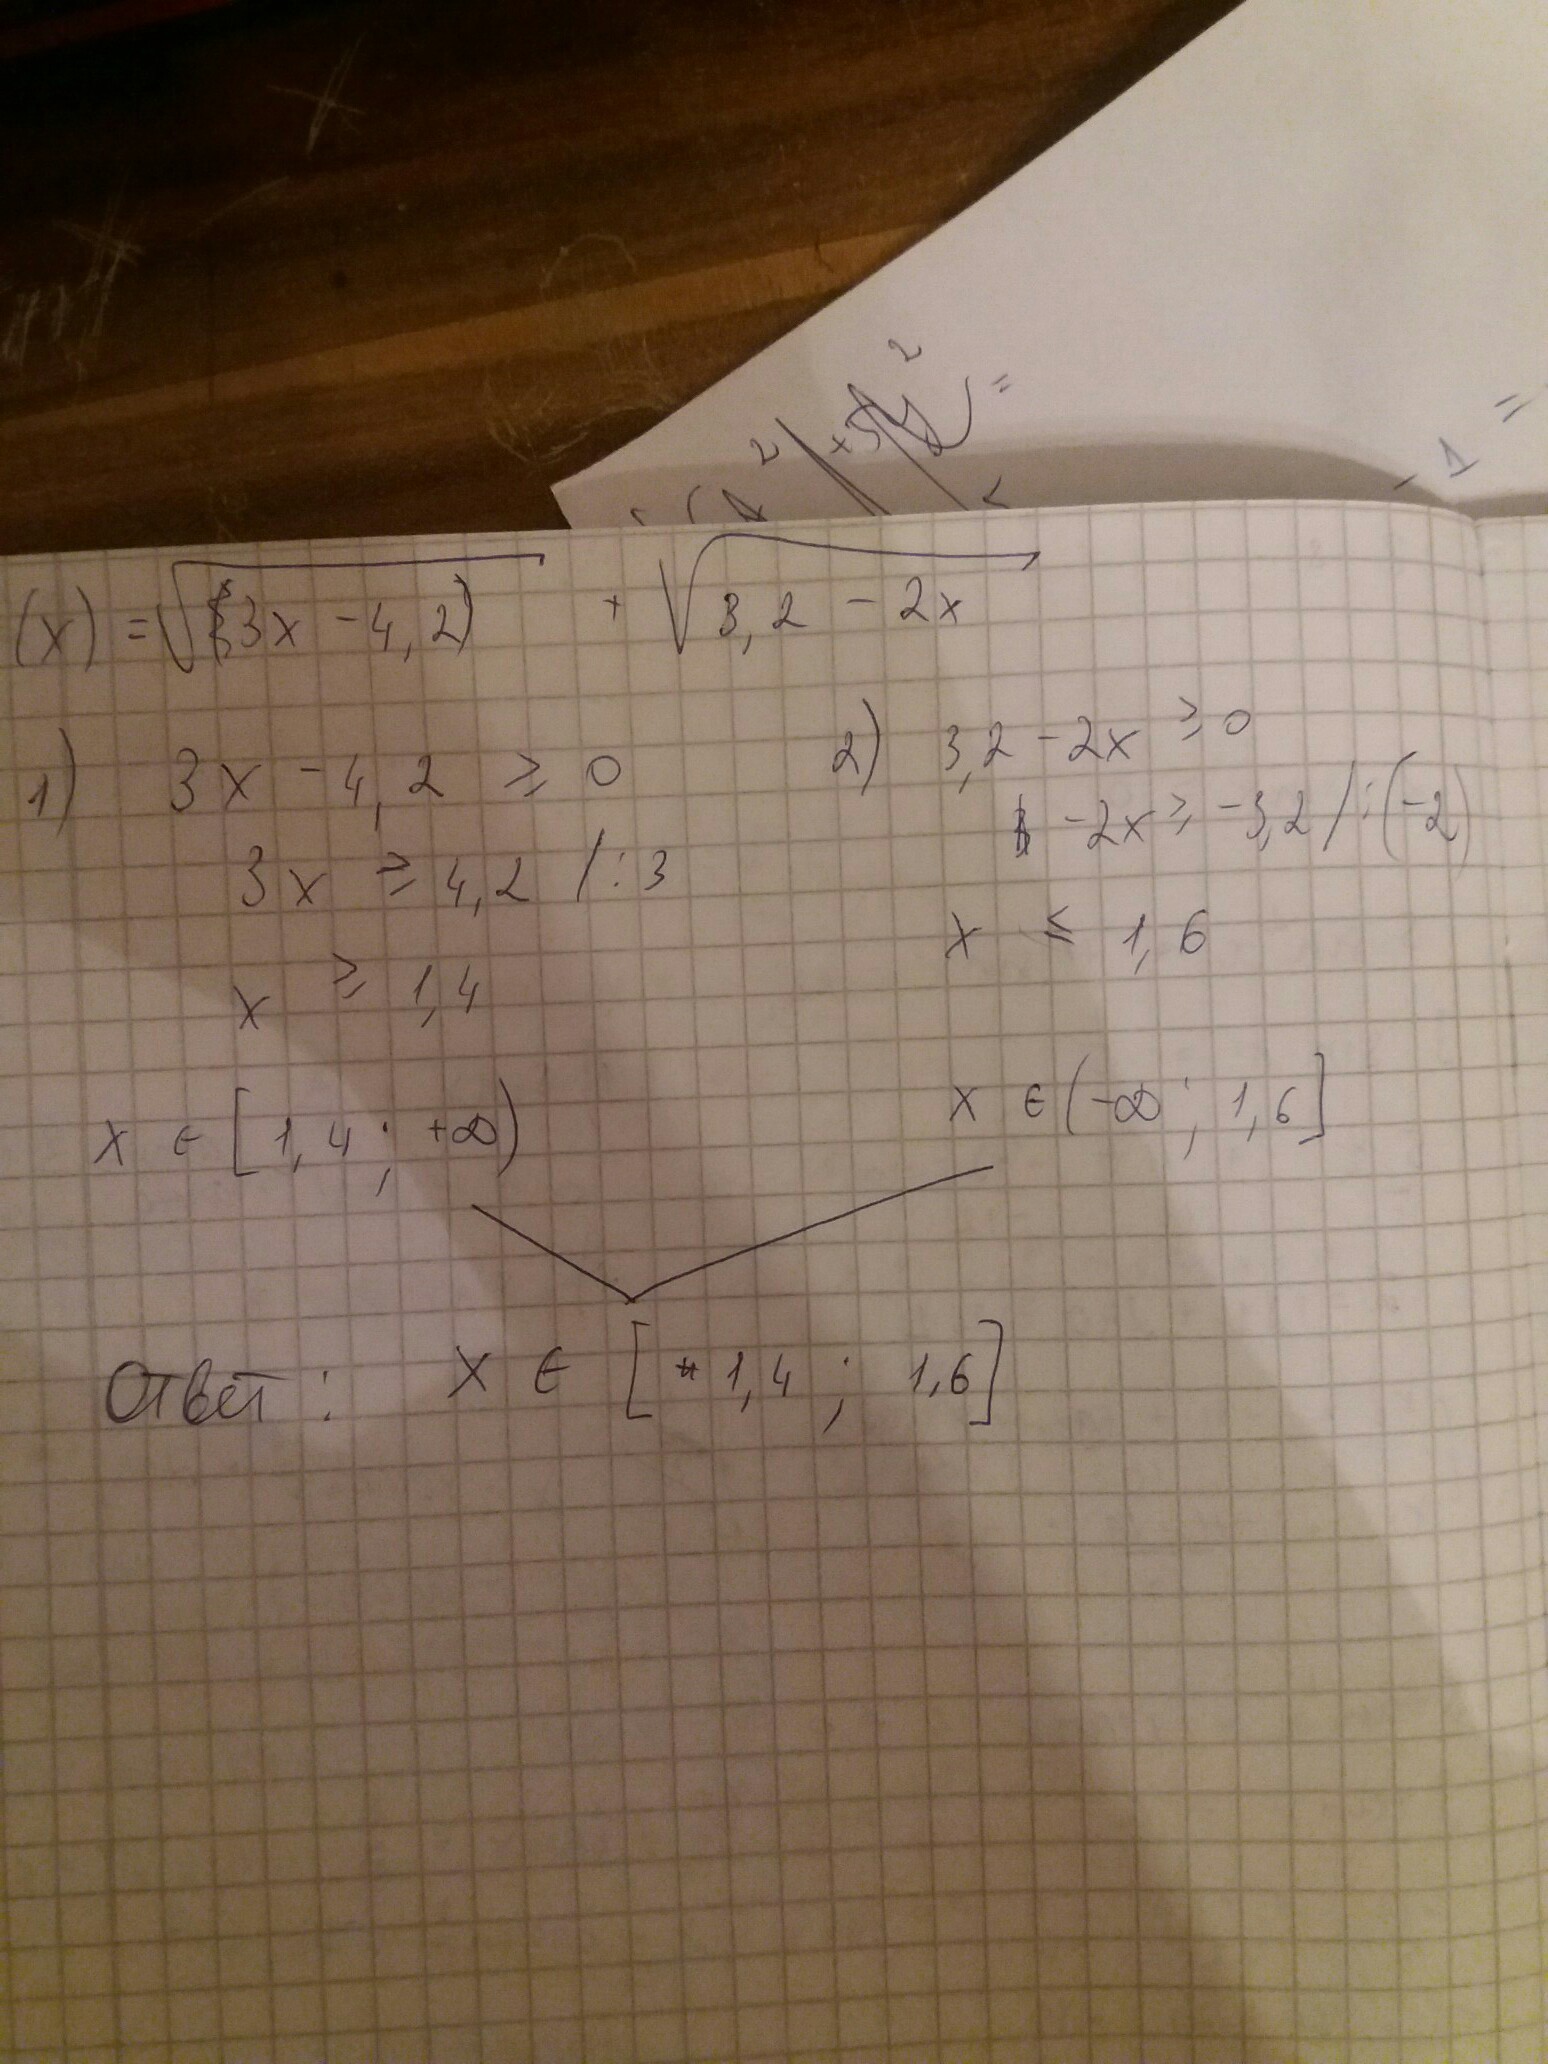 (x) = √(3x - 4,2) + √3,2 - 2x
1) 3x - 4,2 ≥ 0
3x ≥ 4,2 /:3
x ≥ 1,4
x ∈ [1,4; +∞)
2) 3,2 - 2x ≥ 0
-2x ≥ -3,2 /:(-2)
x ≤ 1,6
x ∈ (-∞; 1,6]
Ответ: x ∈ [1,4; 1,6]